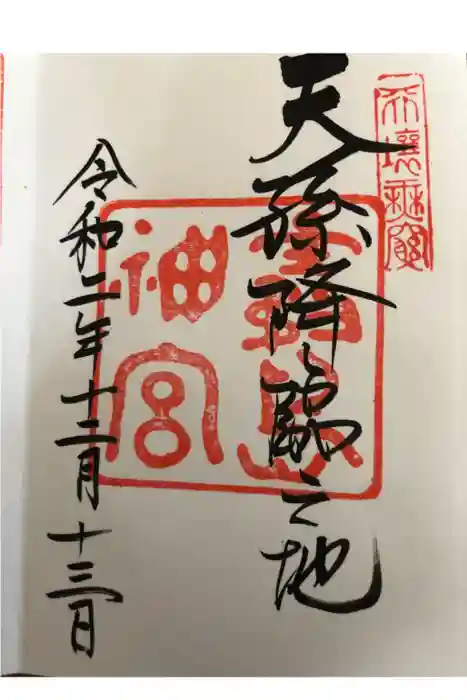 天壤無窮
天孫降臨之地
霧島
神宮
令和二年十二月十三日